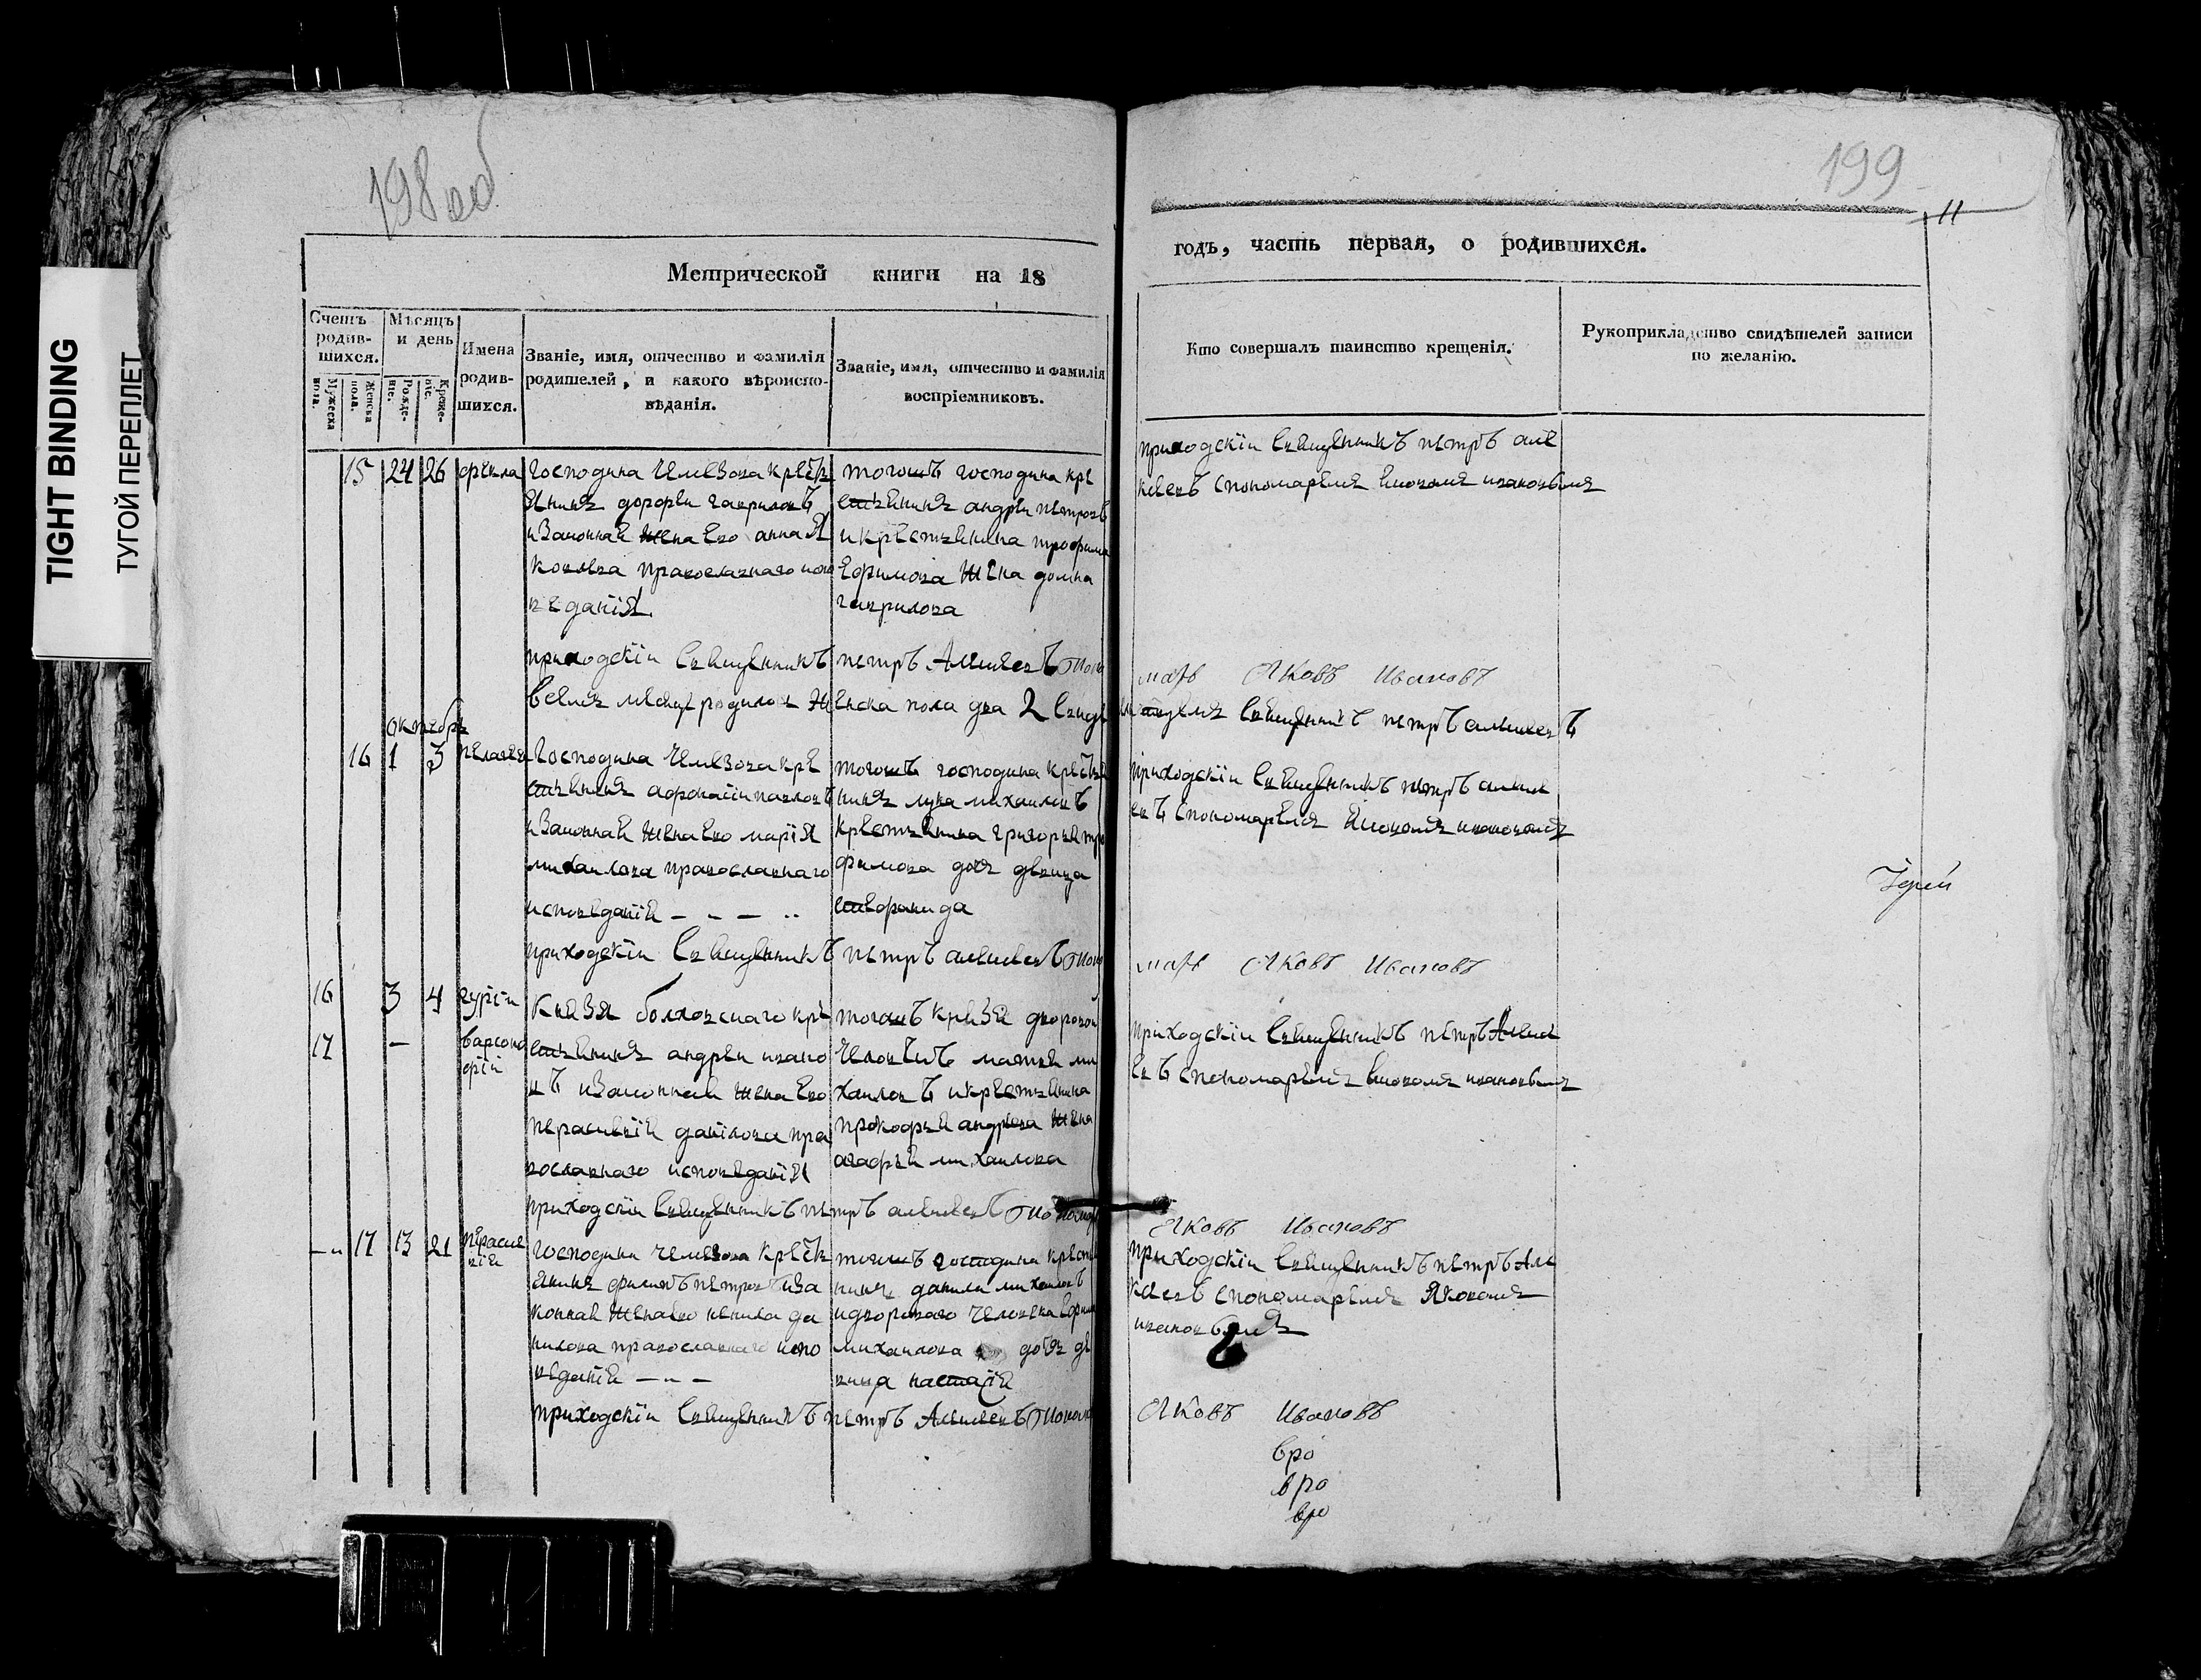 TIGHT BINDING
ТУГОЙ ПЕРЕПЛЕТ
198 об
199
11
Метрической книги на 18
годъ, часть первая, о родившихся.
Счетъ родив-шихся.
Мужеска пола.
Женска пола.
Мѣсяцъ и день
Рожде-ніе.
Креще-ніе.
Имена родив-шихся.
Званіе, имя, отчество и фамилія
родителей, и какого вѣроиспо-
вѣданія.
Званіе, имя, отчество и фамилія
воспріемниковъ.
Кто совершалъ таинство крещенія.
Рукоприкладство свидѣтелей записи
по желанію.
15 24 26 фекла
Господина крест
янинъ дорофеи гавриловъ
и законная жена его анна я
ковлева православнаго испо
веданія
тогожъ господина кре
стьянинъ андреи петровъ
и крестьянина трофима
ефимова жена домна
гаврилова
приходскіи священникъ петръ але
ксеевъ спономаремъ яковомъ ивановымъ
приходскіи священникъ петръ Алексеевъ Поно
марь Яковъ Ивановъ
всемъ месяце родилось женска пола два 2 свиде
священникъ петръ алексеевъ
октябрь
16 1 3 пелагея
Господина кре
стьянинъ афонасіи павловъ
и законная жена его марія
михаилова православнаго
исповеданія
тогожъ господина крестья
нинъ лука михаиловъ
крестьянина григорья тро
фимова дочь девица
стефанида
приходскіи священникъ петръ алексе
евъ спономаремъ яковомъ ивановымъ
Іерей
приходскіи священникъ петръ алексеевъ Поно
марь Яковъ Ивановъ
16 3 4 гуріи
17 – варсоно
фіи
Князя болховскаго кре
стьянинъ андреи ивано
въ и законная жена его
перасковія данілова пра
вославнаго исповеданія
тогожъ князя дворовои
человекъ матвеи ми
хаиловъ и крестьянина
прокофья андреева жена
агафья михаилова
приходскіи священникъ петръ Алексе
евъ спономаремъ яковомъ ивановымъ
приходскіи священникъ петръ алексеевъ Пономарь
Яковъ Ивановъ
17 13 21 пераско
вія
Господина крестъ
янинъ филипъ петровъ иза
конная жена его ненила да
нилова православнаго испо
веданія
тогожъ господина крестья
нинъ данила михаиловъ
и двороваго человека
михаилова дочь де
вица настасія
приходскіи священникъ петръ Але
ксеевъ спономаремъ Яковомъ
ивановымъ
приходскіи священникъ петръ Алексеевъ Понома
Яковъ Ивановъ
вро
вро
вро